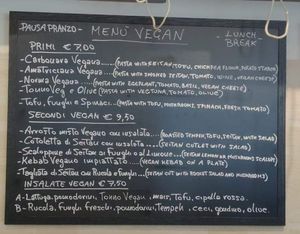 PAUSA PRANZO - MENÙ VEGAN - LUNCH BREAK
PRIMI € 7,00
- Carbonara Vegana (PASTA WITH SEITAN, TOFU, CHICKPEA FLOUR,
- Amatriciana Vegana (PASTA WITH SMOKED SEITAN, TOMATO, WINE, VEGAN CHEESE)
- Norma Vegana (PASTA WITH EGGPLANT, TOMATO, BASIL, VEGAN CHEESE)
- Tonno Veg e Olive (PASTA WITH VEGTUNA, TOMATO, OLIVE)
- Tofu, Funghi e Spinaci (PASTA WITH TOFU, MUSHROOMS, SPINACH, FRESH TOMATO)
SECONDI VEGAN € 9,50
- Arrosto misto Vegano con insalata (ROASTED TEMPEH, TOFU, SEITAN, WITH SALAD)
- Cotoletta di Seitan con insalata (SEITAN CUTLET WITH SALAD)
- Scaloppine di Seitan ai Funghi o al Limone (SEITAN LEMON OR MUSHROOMS SCALOPS)
- Kebab Vegano impiattato (VEGAN KEBAB ON A PLATE)
- Tagliata di Seitan con Rucola e Funghi (SEITAN CUT WITH ROCKET SALAD AND MUSHROOMS)
INSALATE VEGAN € 7,50
A - Lattuga, pomodorini, Tonno Vegan, mais, Tofu, cipolla rossa.
B - Rucola, Funghi freschi, pomodorini, Tempeh, ceci, grano, olive.